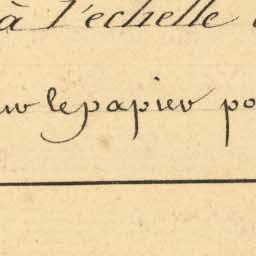 à l'echelle
le papier